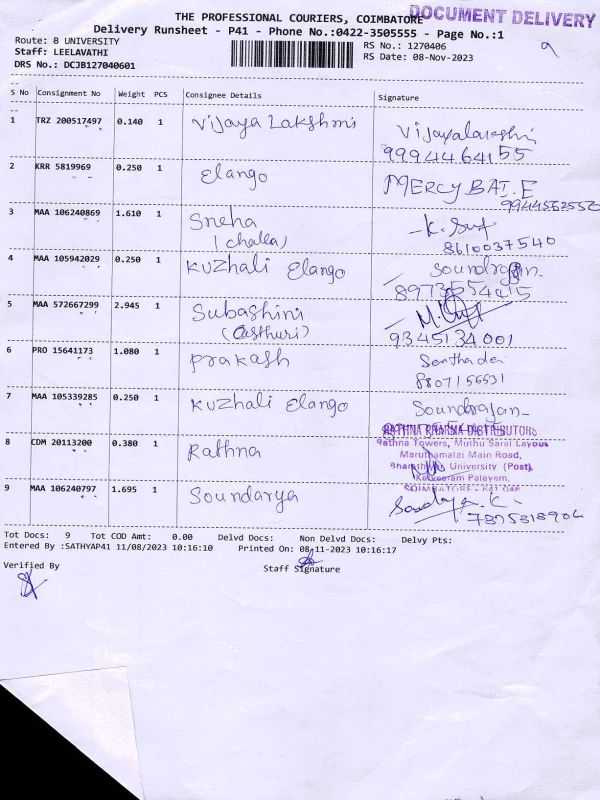 THE PROFESSIONAL COURIERS, COIMBATORE
DOCUMENT DELIVERY
Delivery Runsheet - P41 - Phone No.:0422-3505555 - Page No.:1
Route: 8 UNIVERSITY
RS No.: 1270406
Staff: LEELAVATHI
RS Date: 08-Nov-2023
DRS No.: DCJB127040601
S No Consignment No Weight PCS Consignee Details Signature
1 TRZ 200517497 0.140 1 Vijaya Lakshmi Vijayalakshmi
9994464155
2 KRR 5819969 0.250 1 Elango MERCY BAT. E
3 MAA 106240869 1.610 1 Sneha K.
(challa) 8610037540
4 MAA 105942029 0.250 1 Kuzhali Elango Soundrajan
5 MAA 572667299 2.945 1 Subashini
(Casthuri) 9345134001
6 PRO 15641173 1.080 1 Prakash
7 MAA 105339285 0.250 1 Kuzhali Elango Soundrajan
RATHNA PHARMA DISTRIBUTORS
8 CDM 20113200 0.380 1 Rathna Rathna Towers, Muthu Sarai Layout
Maruthamalai Main Road,
Bharathiyar University (Post),
Kalveeram Palayam,
9 MAA 106240797 1.695 1 Soundarya
Tot Docs: 9 Tot COD Amt: 0.00 Delvd Docs: Non Delvd Docs: Delvy Pts:
Entered By :SATHYAP41 11/08/2023 10:16:10 Printed On: 08-11-2023 10:16:17
Verified By Staff Signature